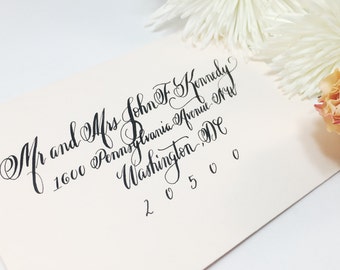 Mr and Mrs John F Kennedy
1600 Pennsylvania Avenue NW
Washington, DC
20500